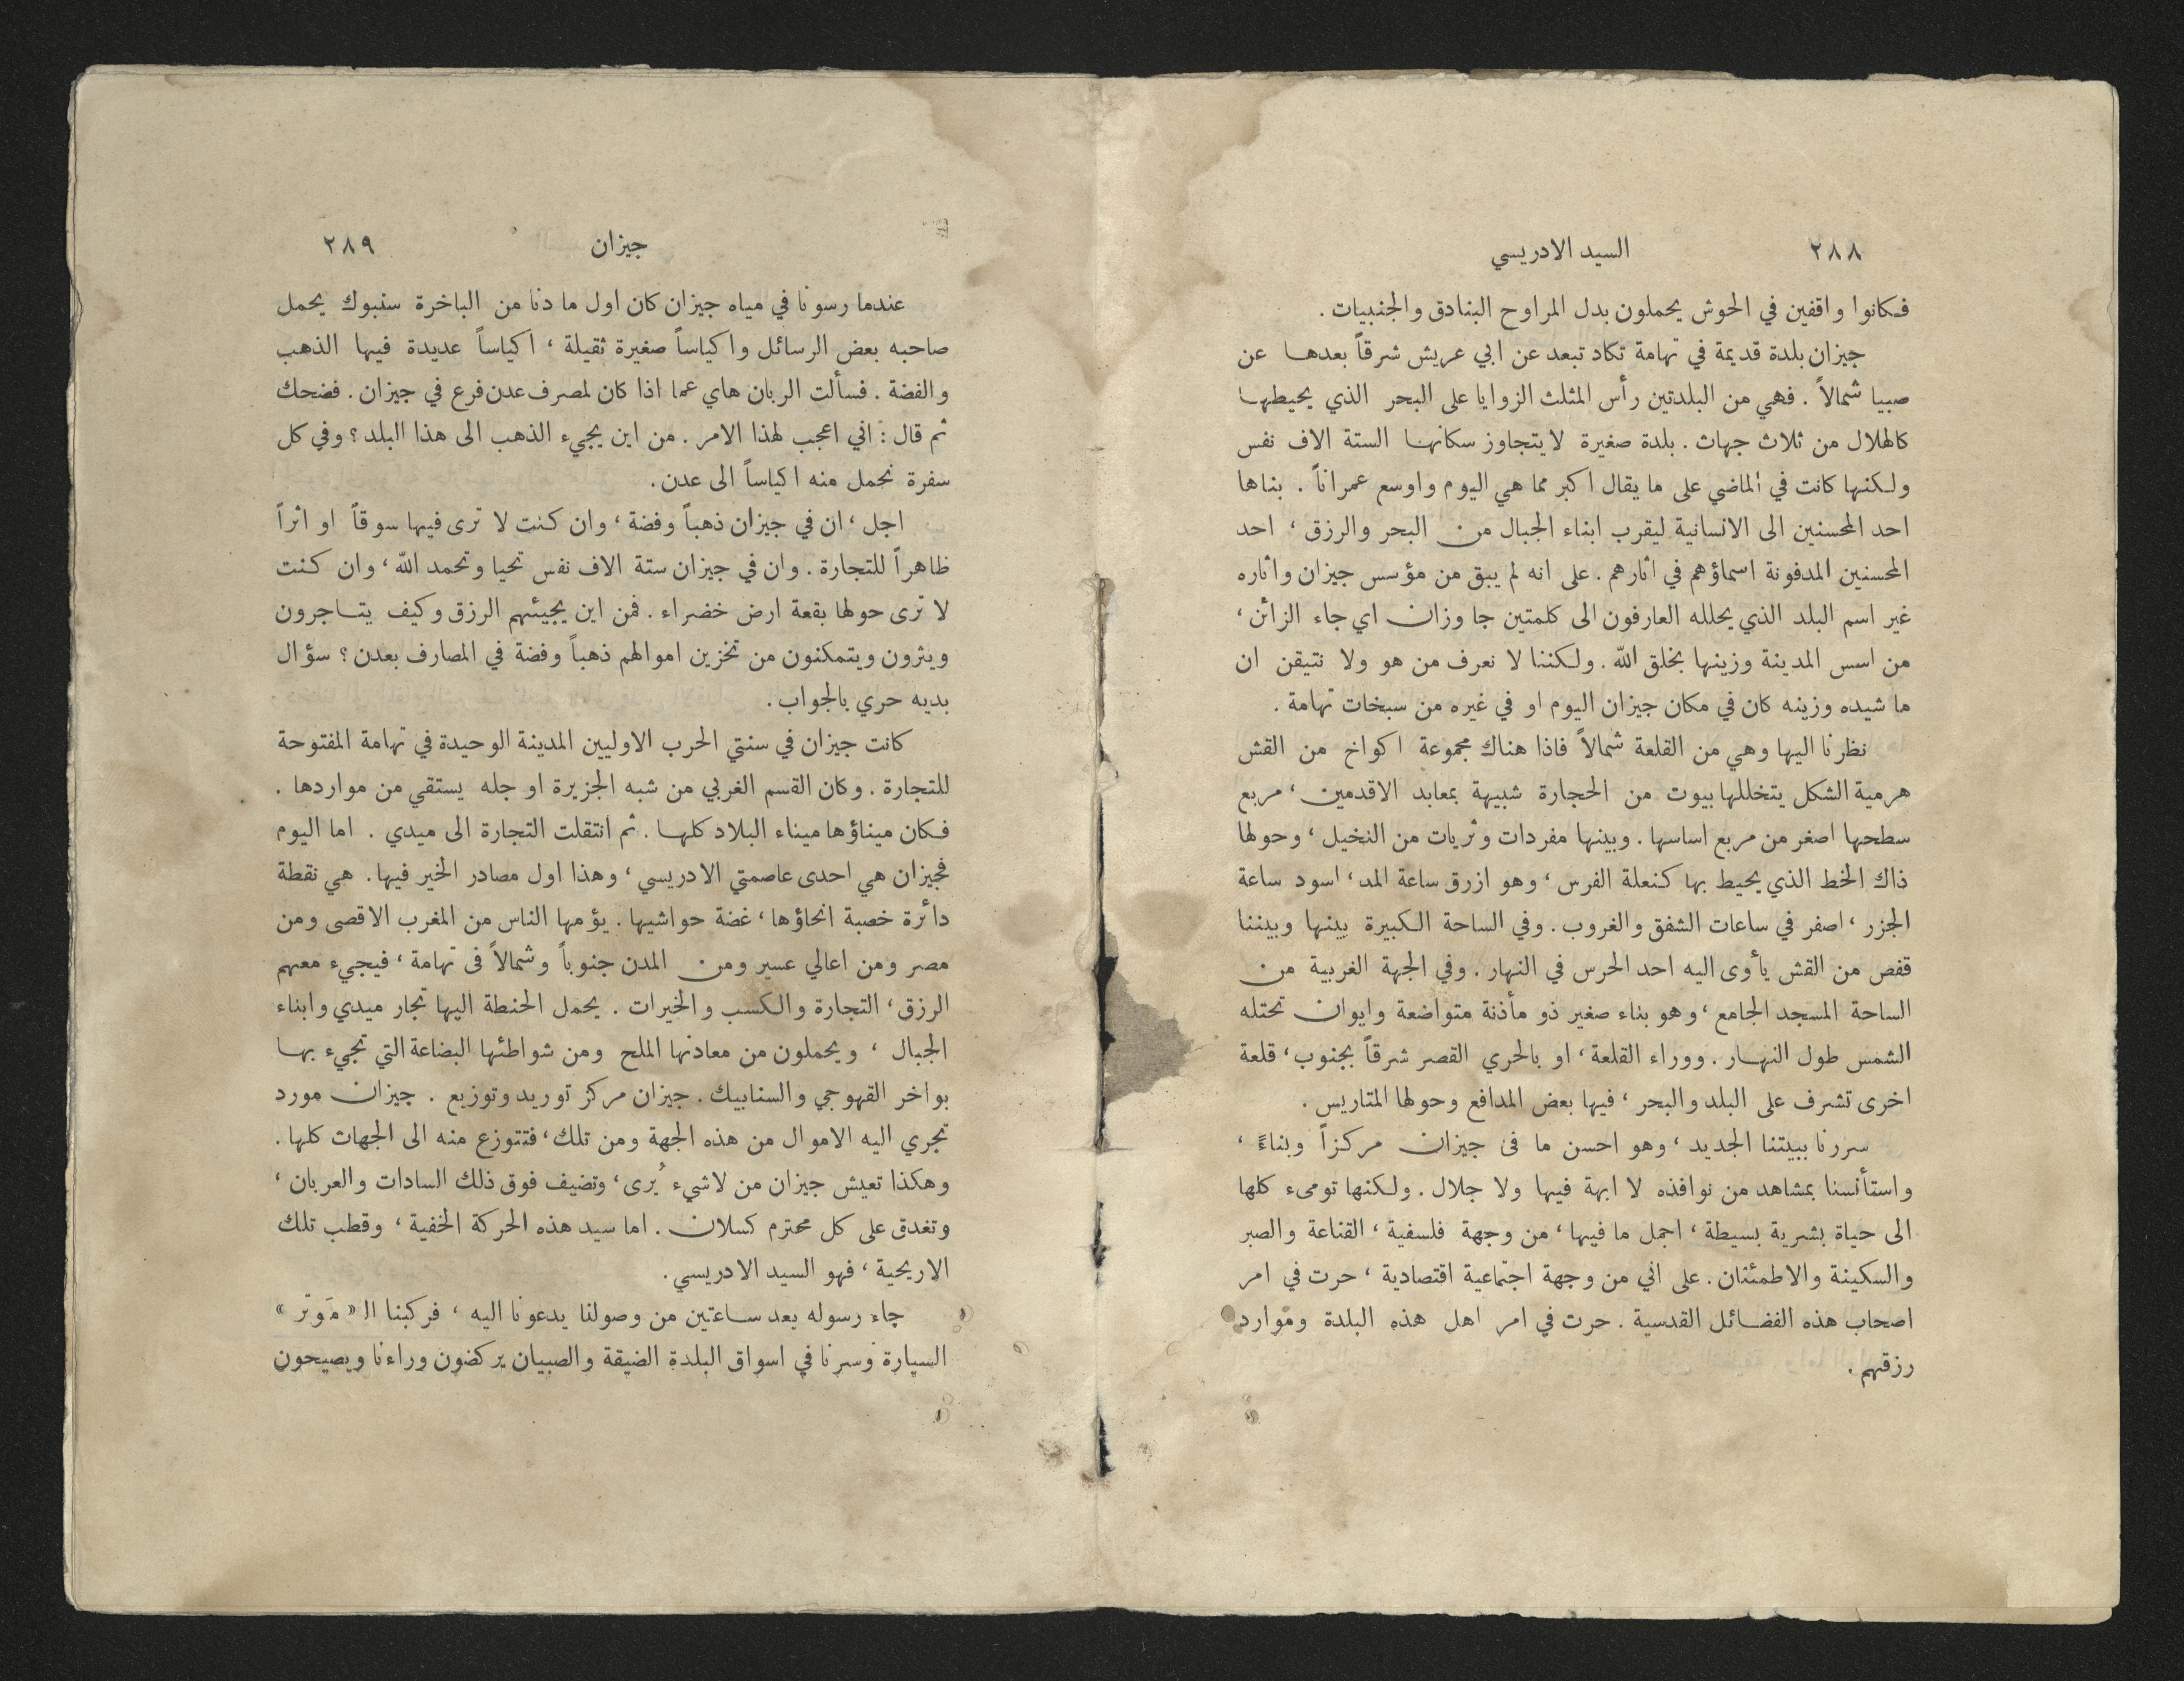 ٢٨٨ السيد الادريسي
فكانوا واقفين في الحوش يحملون بدل المراوح البنادق والجنبيات .
جيزان بلدة قديمة في تهامة تكاد تبعد عن ابي عريش شرقاً بعدها عن
صبيا شمالاً . فهي من البلدتين رأس المثلث الزوايا على البحر الذي يحيطها
كالهلال من ثلاث جهات . بلدة صغيرة لا يتجاوز سكانها الستة الاف نفس
ولكنها كانت في الماضي على ما يقال اكبر مما هي اليوم واوسع عمراناً . بناها
احد المحسنين الى الانسانية ليقرب ابناء الجبال من البحر والرزق ، احد
المحسنين المدفونة اسماؤهم في اثارهم . على انه لم يبق من مؤسس جيزان واثاره
غير اسم البلد الذي يحلله العارفون الى كلمتين جا وزان اي جاء الزائن ،
من اسس المدينة وزينها بخلق الله . ولكننا لا نعرف من هو ولا نتيقن ان
ما شيده وزينه كان في مكان جيزان اليوم او في غيره من سبخات تهامة .
نظرنا اليها وهي من القلعة شمالاً فاذا هناك مجموعة اكواخ من القش
هرمية الشكل يتخللها بيوت من الحجارة شبيهة بمعابد الاقدمين ، مربع
سطحها اصغر من مربع اساسها . وبينها مفردات وثريات من النخيل ، وحولها
ذاك الخط الذي يحيط بها كنعلة الفرس ، وهو ازرق ساعة المد ، اسود ساعة
الجزر ، اصفر في ساعات الشفق والغروب . وفي الساحة الكبيرة بينها وبيننا
قفص من القش يأوى اليه احد الحرس في النهار . وفي الجهة الغربية من
الساحة المسجد الجامع ، وهو بناء صغير ذو مأذنة متواضعة وايوان تحتله
الشمس طول النهار . ووراء القلعة ، او بالحري القصر شرقاً بجنوب ، قلعة
اخرى تشرف على البلد والبحر ، فيها بعض المدافع وحولها المتاريس .
سررنا ببيتنا الجديد ، وهو احسن ما فى جيزان مركزاً وبناءً ،
واستأنسنا بمشاهد من نوافذه لا ابهة فيها ولا جلال . ولكنها تومىء كلها
الى حياة بشرية بسيطة ، اجمل ما فيها ، من وجهة فلسفية ، القناعة والصبر
والسكينة والاطمئنان . على اني من وجهة اجتماعية اقتصادية ، حرت في امر
اصحاب هذه الفضائل القدسية . حرت في امر اهل هذه البلدة وموارد
رزقهم .
جيزان ٢٨٩
عندما رسونا في مياه جيزان كان اول ما دنا من الباخرة سنبوك يحمل
صاحبه بعض الرسائل واكياساً صغيرة ثقيلة ، اكياساً عديدة فيها الذهب
والفضة . فسألت الربان هاي عما اذا كان لمصرف عدن فرع في جيزان . فضحك
ثم قال : اني اعجب لهذا الامر . من اين يجيء الذهب الى هذا البلد ؟ وفي كل
سفرة نحمل منه اكياساً الى عدن .
اجل ، ان في جيزان ذهباً وفضة ، وان كنت لا ترى فيها سوقاً او اثراً
ظاهراً للتجارة . وان في جيزان ستة الاف نفس تحيا وتحمد الله ، وان كنت
لا ترى حولها بقعة ارض خضراء . فمن اين يجيئهم الرزق وكيف يتاجرون
ويثرون ويتمكنون من تخزين اموالهم ذهباً وفضة في المصارف بعدن ؟ سؤال
بديه حري بالجواب .
كانت جيزان في سنتي الحرب الاوليين المدينة الوحيدة في تهامة المفتوحة
للتجارة . وكان القسم الغربي من شبه الجزيرة او جله يستقي من مواردها .
فكان ميناؤها ميناء البلاد كلها . ثم انتقلت التجارة الى ميدي . اما اليوم
فجيزان هي احدى عاصمتي الادريسي ، وهذا اول مصادر الخير فيها . هي نقطة
دائرة خصبة انحاؤها ، غضة حواشيها . يؤمها الناس من المغرب الاقصى ومن
مصر ومن اعالي عسير ومن المدن جنوباً وشمالاً فى تهامة ، فيجيء معهم
الرزق ، التجارة والكسب والخيرات . يحمل الحنطة اليها تجار ميدي وابناء
الجبال ، ويحملون من معادنها الملح ومن شواطئها البضاعة التي تجيء بها
بواخر القهوجي والسنابيك . جيزان مركز توريد وتوزيع . جيزان مورد
تجري اليه الاموال من هذه الجهة ومن تلك ، فتتوزع منه الى الجهات كلها .
وهكذا تعيش جيزان من لا شيء يُرى ، وتضيف فوق ذلك السادات والعربان ،
وتغدق على كل محترم كسلان . اما سيد هذه الحركة الخفية ، وقطب تلك
الاريحية ، فهو السيد الادريسي .
جاء رسوله بعد ساعتين من وصولنا يدعونا اليه ، فركبنا الـ « مَوتر »
السيارة وسرنا في اسواق البلدة الضيقة والصبيان يركضون وراءنا ويصيحون